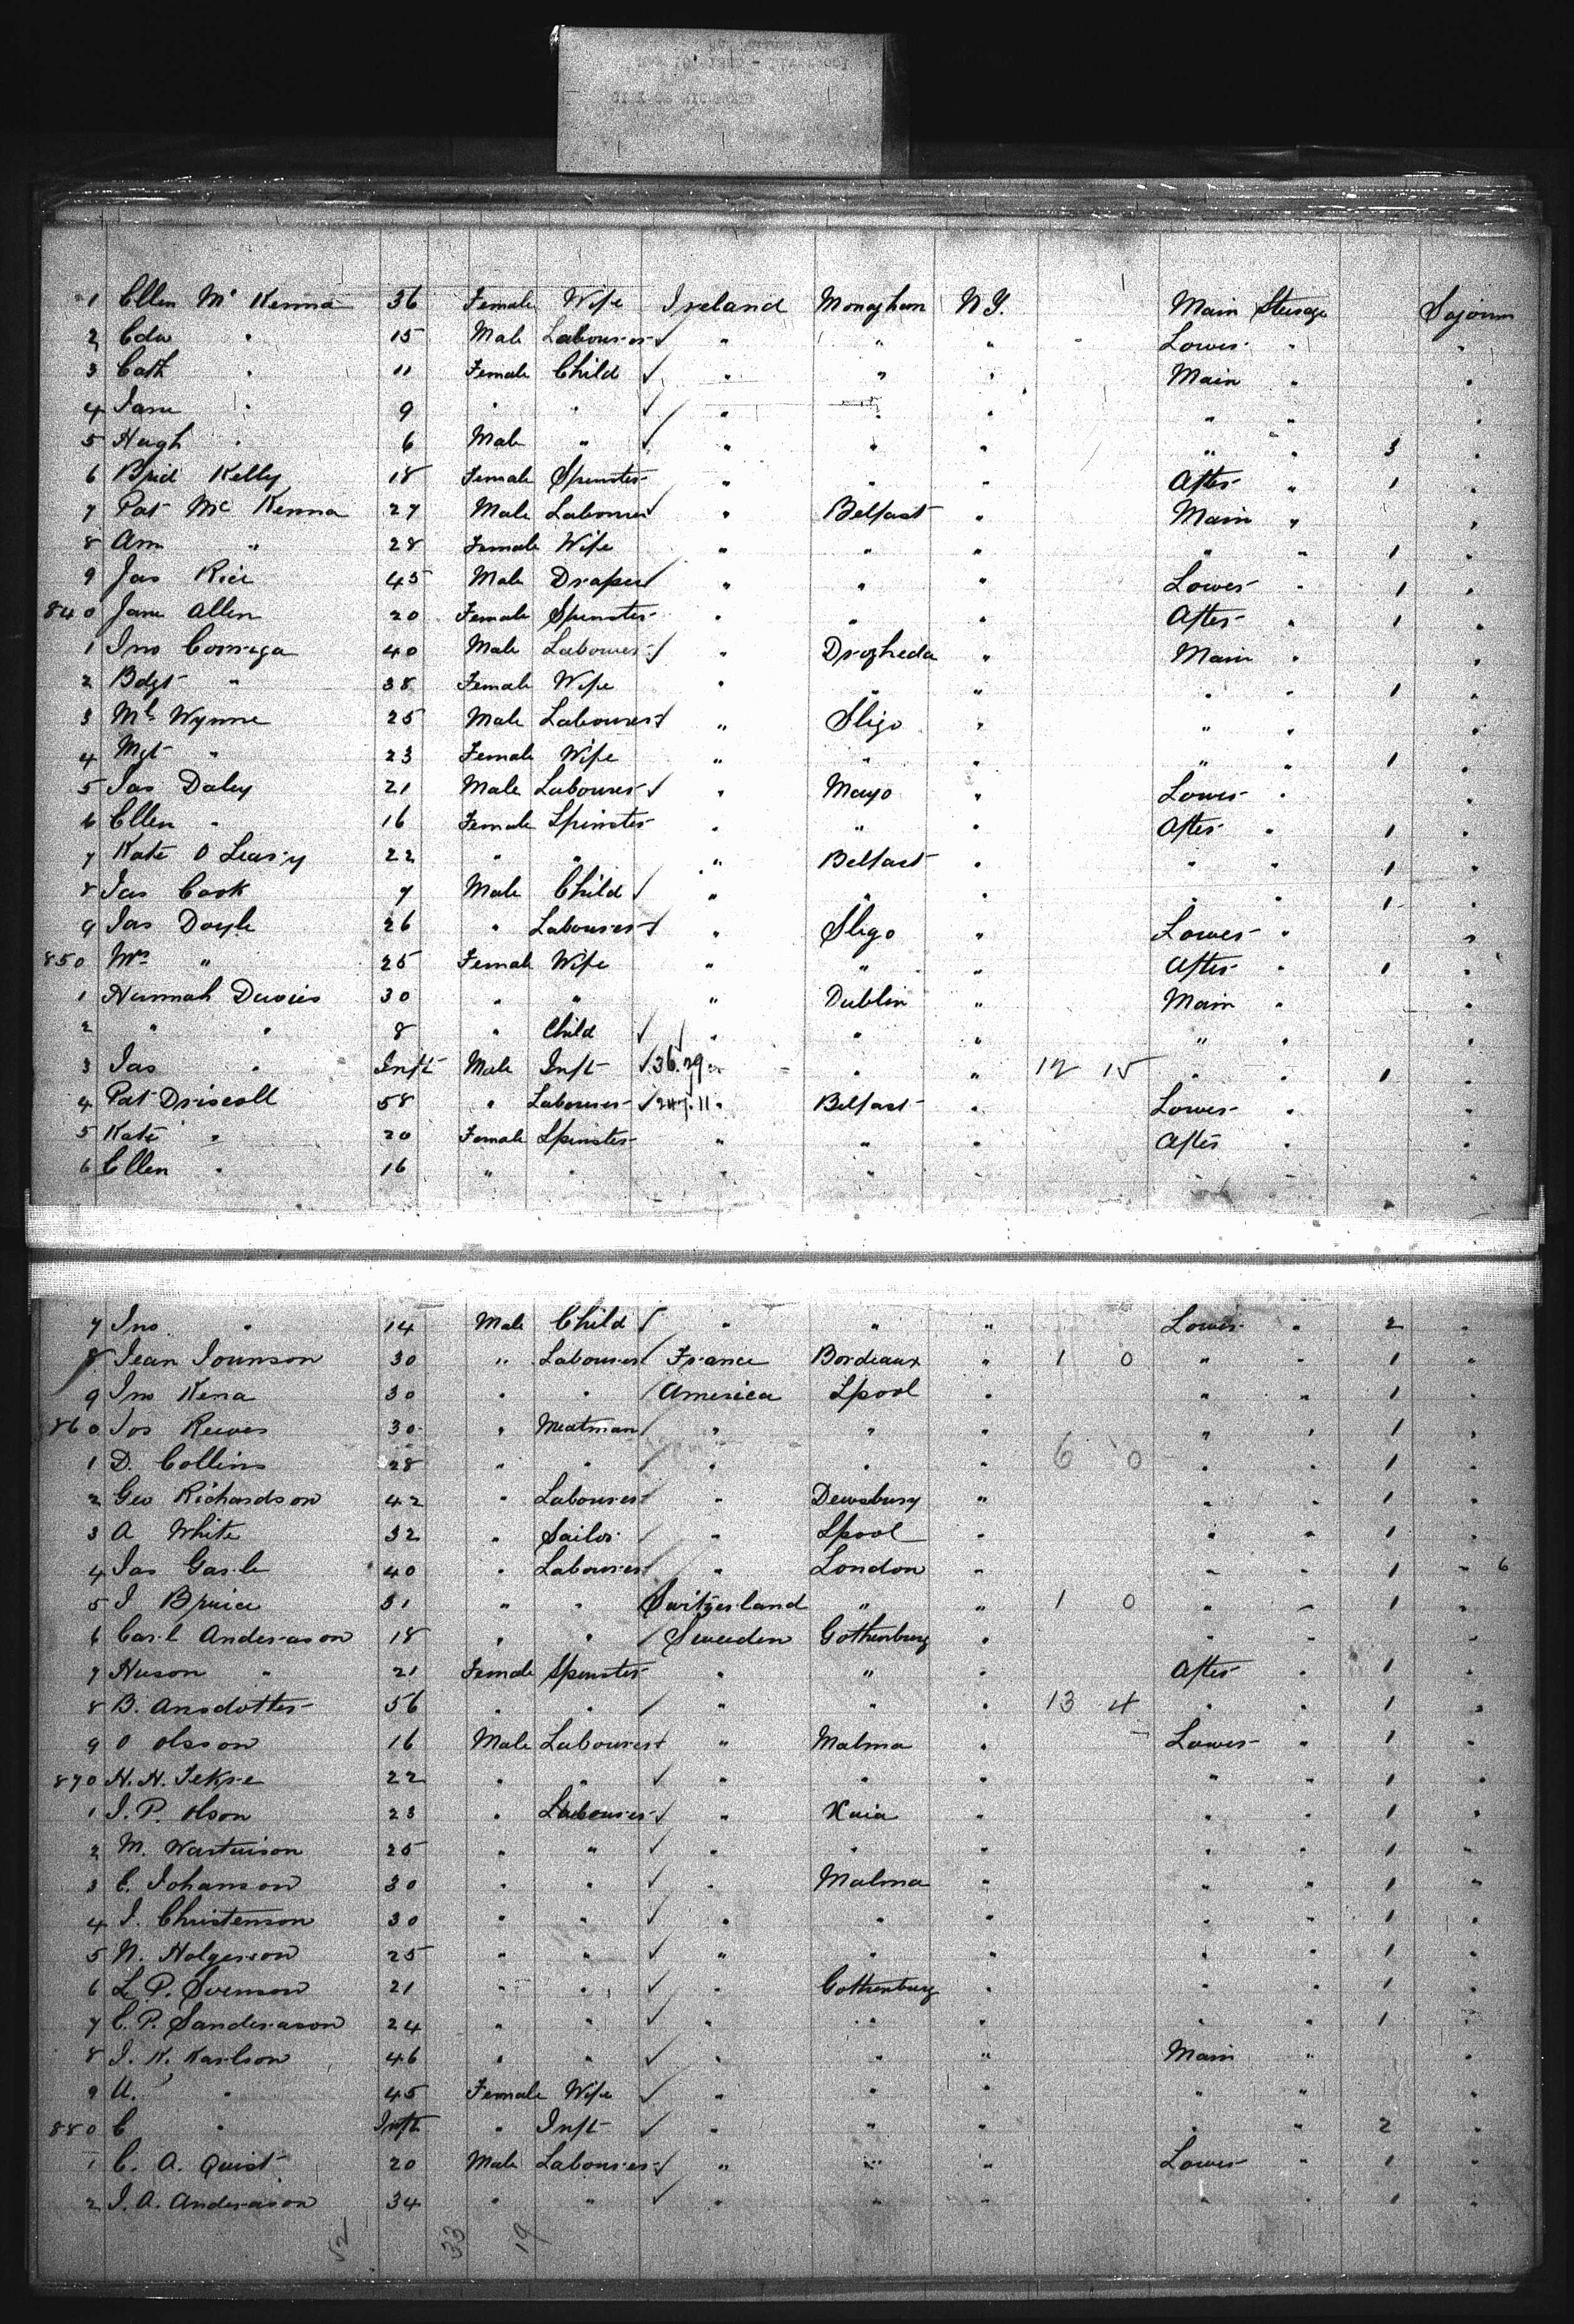 1 Ellen Mc Kenna 36 Female Wife Ireland Monaghan N.Y. Main Steerage Sojourn
2 Edw " 15 Male Labourer ✓ " " " Lower " "
3 Cath " 11 Female Child ✓ " " " Main " "
4 Jane " 9 " " ✓ " " " " " "
5 Hugh " 6 Male " ✓ " " " " " 3 "
6 Brid Kelly 18 Female Spinster " " " After " 1 "
7 Pat Mc Kenna 27 Male Labourer ✓ " Belfast " Main " "
8 Ann " 28 Female Wife " " " " " 1 "
9 Jas Rice 45 Male Draper ✓ " " " Lower " 1 "
840 Jane Allen 20 Female Spinster " " " After " 1 "
1 Jno 40 Male Labourer ✓ " Drogheda " Main " "
2 Bdgt " 38 Female Wife " " " " " 1 "
3 Ml Wynne 25 Male Labourer ✓ " Sligo " " " "
4 Mgt " 23 Female Wife " " " " " 1 "
5 Jas Daley 21 Male Labourer ✓ " Mayo " Lower " "
6 Ellen " 16 Female Spinster " " " After " 1 "
7 Kate O Leary 22 " " " Belfast " " " 1 "
8 Jas Cook 7 Male Child ✓ " " " " " 1 "
9 Jas Doyle 26 " Labourer ✓ " Sligo " Lower " "
850 Mrs " 25 Female Wife " " " After " 1 "
1 Hannah Davies 30 " " " Dublin " Main " "
2 " " 8 " Child ✓ ✓ " " " " " "
3 Jas " Inft Male Inft ✓ 36.29 " " " 12 15 " " 1 "
4 Pat Driscoll 58 " Labourer ✓ " Belfast " Lower " "
5 Kate " 20 Female Spinster " " " After " "
6 Ellen " 16 " " " " " " "
7 Jno " 14 Male Child ✓ " " " Lower " 2 "
8 Jean Jounson 30 " Labourer ✓ France Bordeaux " 1 0 " " 1 "
9 Jno Kena 30 " " ✓ America Lpool " " " 1 "
860 Jos Reeves 30 " Meatman ✓ " " " " " 1 "
1 D. Collins 28 " " ✓ " " " 6 0 " " 1 "
2 Geo Richardson 42 " Labourer ✓ " Dewsbury " " " 1 "
3 A White 32 " Sailor ✓ " Lpool " " " 1 "
4 Jas 40 " Labourer ✓ " London " " " 1 " 6
5 J 31 " " Switzerland " " 1 0 " " 1 "
6 Carl Anderason 18 " " ✓ Sweden Gothenburg " " " "
7 Huson " 21 Female Spinster " " " After " 1 "
8 B. Ansdotter 56 " " ✓ " " " 13 4 " " 1 "
9 O Olsson 16 Male Labourer ✓ " Malma " Lower " 1 "
870 H. H. 22 " " ✓ " " " " " 1 "
1 J. P. Olson 23 " Labourer ✓ " " " " 1 "
2 M. 25 " " ✓ " " " " " 1 "
3 C. Johanson 30 " " ✓ " Malma " " " 1 "
4 J. Christenson 30 " " ✓ " " " " " 1 "
5 N. Holgerson 25 " " ✓ " " " " " 1 "
6 L. P. Svenson 21 " " ✓ " Gothenburg " " " 1 "
7 C. P. Sanderason 24 " " ✓ " " " " " 1 "
8 J. K. Karlson 46 " " ✓ " " " Main " "
9 U. " 45 Female Wife ✓ " " " " " "
880 C " Inft " Inft ✓ " " " " " 2 "
1 C. A. Quist 20 Male Labourer ✓ " " " Lower " 1 "
2 J. A. Anderason 34 " " ✓ " " " " " 1 "
52 33 19